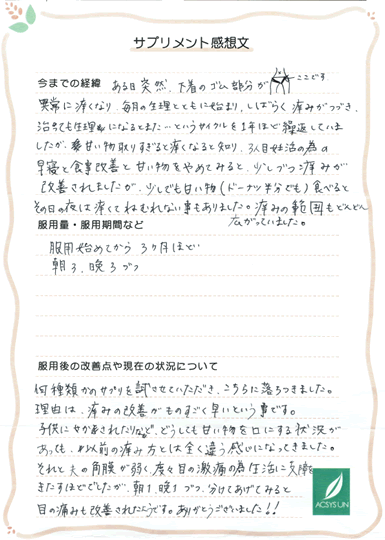 サプリメント感想文
今までの経緯 ある日突然、下着のゴム部分が ここです
異常に痒くなり、毎月の生理とともに始まり、しばらく痒みがつづき、
治まても生理になるとまた…というサイクルを1年ほど繰返していま
したが、甘い物取りすぎると痒くなると知り、3人目妊活の為の
早寝と食事改善と甘い物をやめてみると、少しづつ痒みが
改善されましたが、少しでも甘い物(ドーナツ半分でも)食べると
その日の夜は痒くてねむれない事もありました。痒みの範囲もどんどん
広がっていました。
服用量・服用期間など
服用始めてから 3ヶ月ほど
朝3、晩3づつ
服用後の改善点や現在の状況について
何種類かのサプリを試させていただき、こちらに落ちつきました。
理由は、痒みの改善がものすごく早いという事です。
子供にせがまれたりなど、どうしても甘い物を口にする状況が
あっても、以前の痒み方とは全く違う感じになってきました。
それと夫の角膜が弱く、度々目の激痛の為生活に支障を
きたすほどでしたが、朝1、晩1づつ、分けてあげてみると
目の痛みも改善されたようです。ありがとうございました!!
ACSYSUN